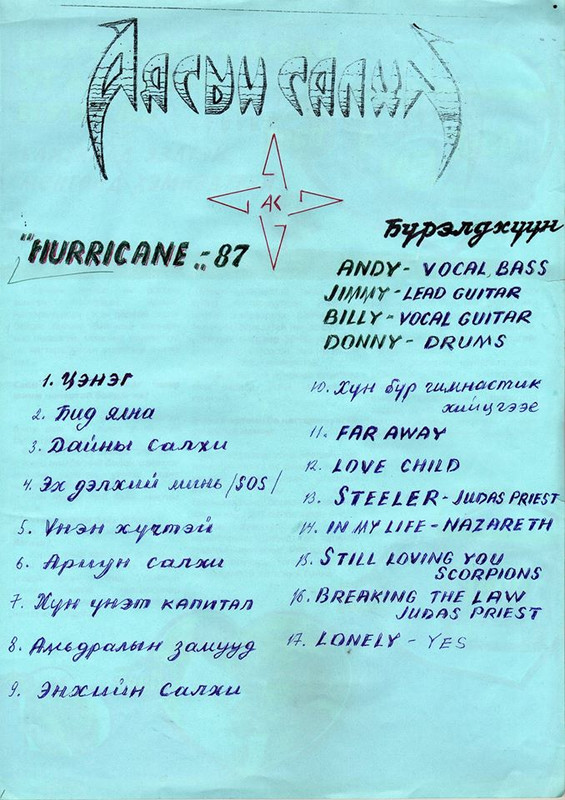 АЯСЫН САЛХИ
АС
"HURRICANE"-87
Бүрэлдхүүн
ANDY - VOCAL, BASS
JIMMY - LEAD GUITAR
BILLY - VOCAL GUITAR
DONNY - DRUMS
1. Цэнэг
2. Бид ялна
3. Дайны салхи
4. Эх дэлхий минь /SOS/
5. Үнэн хүчтэй
6. Ариун салхи
7. Хүн үнэт капитал
8. Амьдралын замууд
9. Энхийн салхи
10. Хүн бүр гимнастик
хийцгээе
11. FAR AWAY
12. LOVE CHILD
13. STEELER - JUDAS PRIEST
14. IN MY LIFE - NAZARETH
15. STILL LOVING YOU
SCORPIONS
16. BREAKING THE LAW
JUDAS PRIEST
17. LONELY - YES